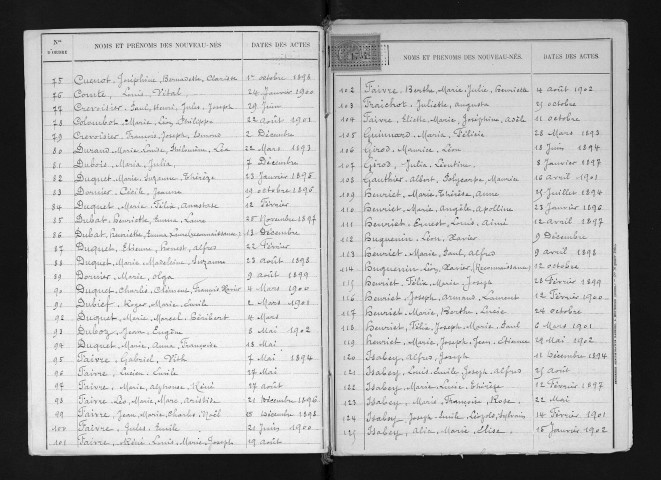 Nos D'ORDRE NOMS ET PRÉNOMS DES NOUVEAU-NÉS DATES DES ACTES
75 Cuenot, Joséphine, Bernadette, Clarisse 1er octobre 1898
76 Comte, Louis, Vital 24 Janvier 1900
77 Crevoisier, Paul, Henri, Jules, Joseph 29 Juin
78 Colombot, Marie, Léon, Philippe 22 août 1901
79 Crevoisier, François, Joseph, 2 Décembre
80 Durand, Marie, Louise, Philomène, Léa 22 Mars 1893
81 Dubois, Maria, Julia 7 Décembre
82 Duquet, Marie, Suzanne, Thérèze 23 Janvier 1895
83 Dornier, Cécile, Jeanne 19 octobre 1896
84 Duquet, Marie, Félix, Anastase 12 Février
85 Dubat, Henriette, Emma, Laure 25 Novembre 1897
86 Dubat, Henriette, Emma, Laure (reconnaissance) 13 Décembre
87 Duquet, Etienne, Ernest, Alfred 22 Février
88 Duquet, Marie, Madeleine, Suzanne 23 août 1898
89 Dornier, Marie, Olga 9 août 1899
90 Duquet, Charles, Clément, François Xavier 4 Mars 1900
91 Dubief, Roger, Marie, Emile 2 Mars 1901
92 Duquet, Marie, Marcel, Héribert 4 Mars
93 Duboz, Jean, Eugène 8 Mai 1902
94 Duquet, Marie, Anna, Françoise 18 Mai
95 Faivre, Gabriel, Vith 7 Mai 1894
96 Faivre, Lucien, Emile 27 Mai
97 Faivre, Marie, Alphonse, Réné 27 août
98 Faivre, Léo, Marie, Marc, Aristide 21 Décembre 1896
99 Faivre, Jean, Marie, Charles, Noël 25 Décembre 1898
100 Faivre, Jules, Emile 21 Juin 1900
101 Faivre, Réné, Louis, Marie, Joseph 19 août
NOMS ET PRÉNOMS DES NOUVEAU-NÉS. DATES DES ACTES
102 Faivre, Berthe, Marie, Julie, Henriette 4 août 1902
103 Fraichot, Juliette, Augusta 25 octobre
104 Faivre, Eliette, Marie, Joséphine, Adèle 11 octobre
105 Guinnard, Marie, Félicie 28 Mars 1893
106 Girod, Maurice, Léon 18 Juin 1894
107 Girod, Julia, Léontine 8 Janvier 1897
108 Gauthier, Albert, Polycarpe, Maurice 16 avril 1901
109 Henriet, Marie, Thérèse, Anne 25 Juillet 1894
110 Henriet, Marie, Angèle, Apolline 23 Janvier 1896
111 Henriet, Ernest, Louis, Aimé 12 avril 1897
112 Huguenin, Léon, Xavier 9 Décembre
113 Henriet, Marie, Paul, Alfred 9 avril 1898
114 Huguenin, Léon, Xavier (Reconnaissance) 12 octobre
115 Henriet, Félix, Marie, Joseph 28 Février 1899
116 Henriet, Joseph, Armand, Laurent 12 Février 1900
117 Henriet, Marie, Berthe, Lucie 24 octobre
118 Henriet, Félix, Joseph, Marie, Paul 6 Mars 1901
119 Henriet, Marie, Joseph, Jean, Etienne 29 Mai 1902
120 Isabey, Alfred, Joseph 11 Décembre 1894
121 Isabey, Louis, Emile, Joseph, Alfred 25 août
122 Isabey, Marie, Lucie, Thérèze 12 Février 1897
123 Isabey, Marie, François, Rose 22 Mai
124 Isabey, Joseph, Emile, Léopold, Sylvain 14 Février 1901
125 Isabey, Alix, Marie, Elise 15 Janvier 1902